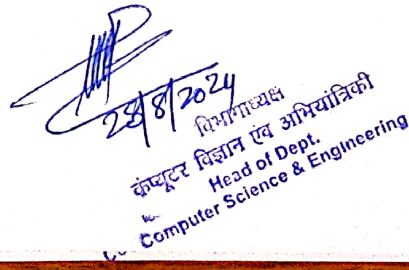 28/8/2024
विभागाध्यक्ष
कंप्यूटर विज्ञान एवं अभियांत्रिकी
Head of Dept.
Computer Science & Engineering